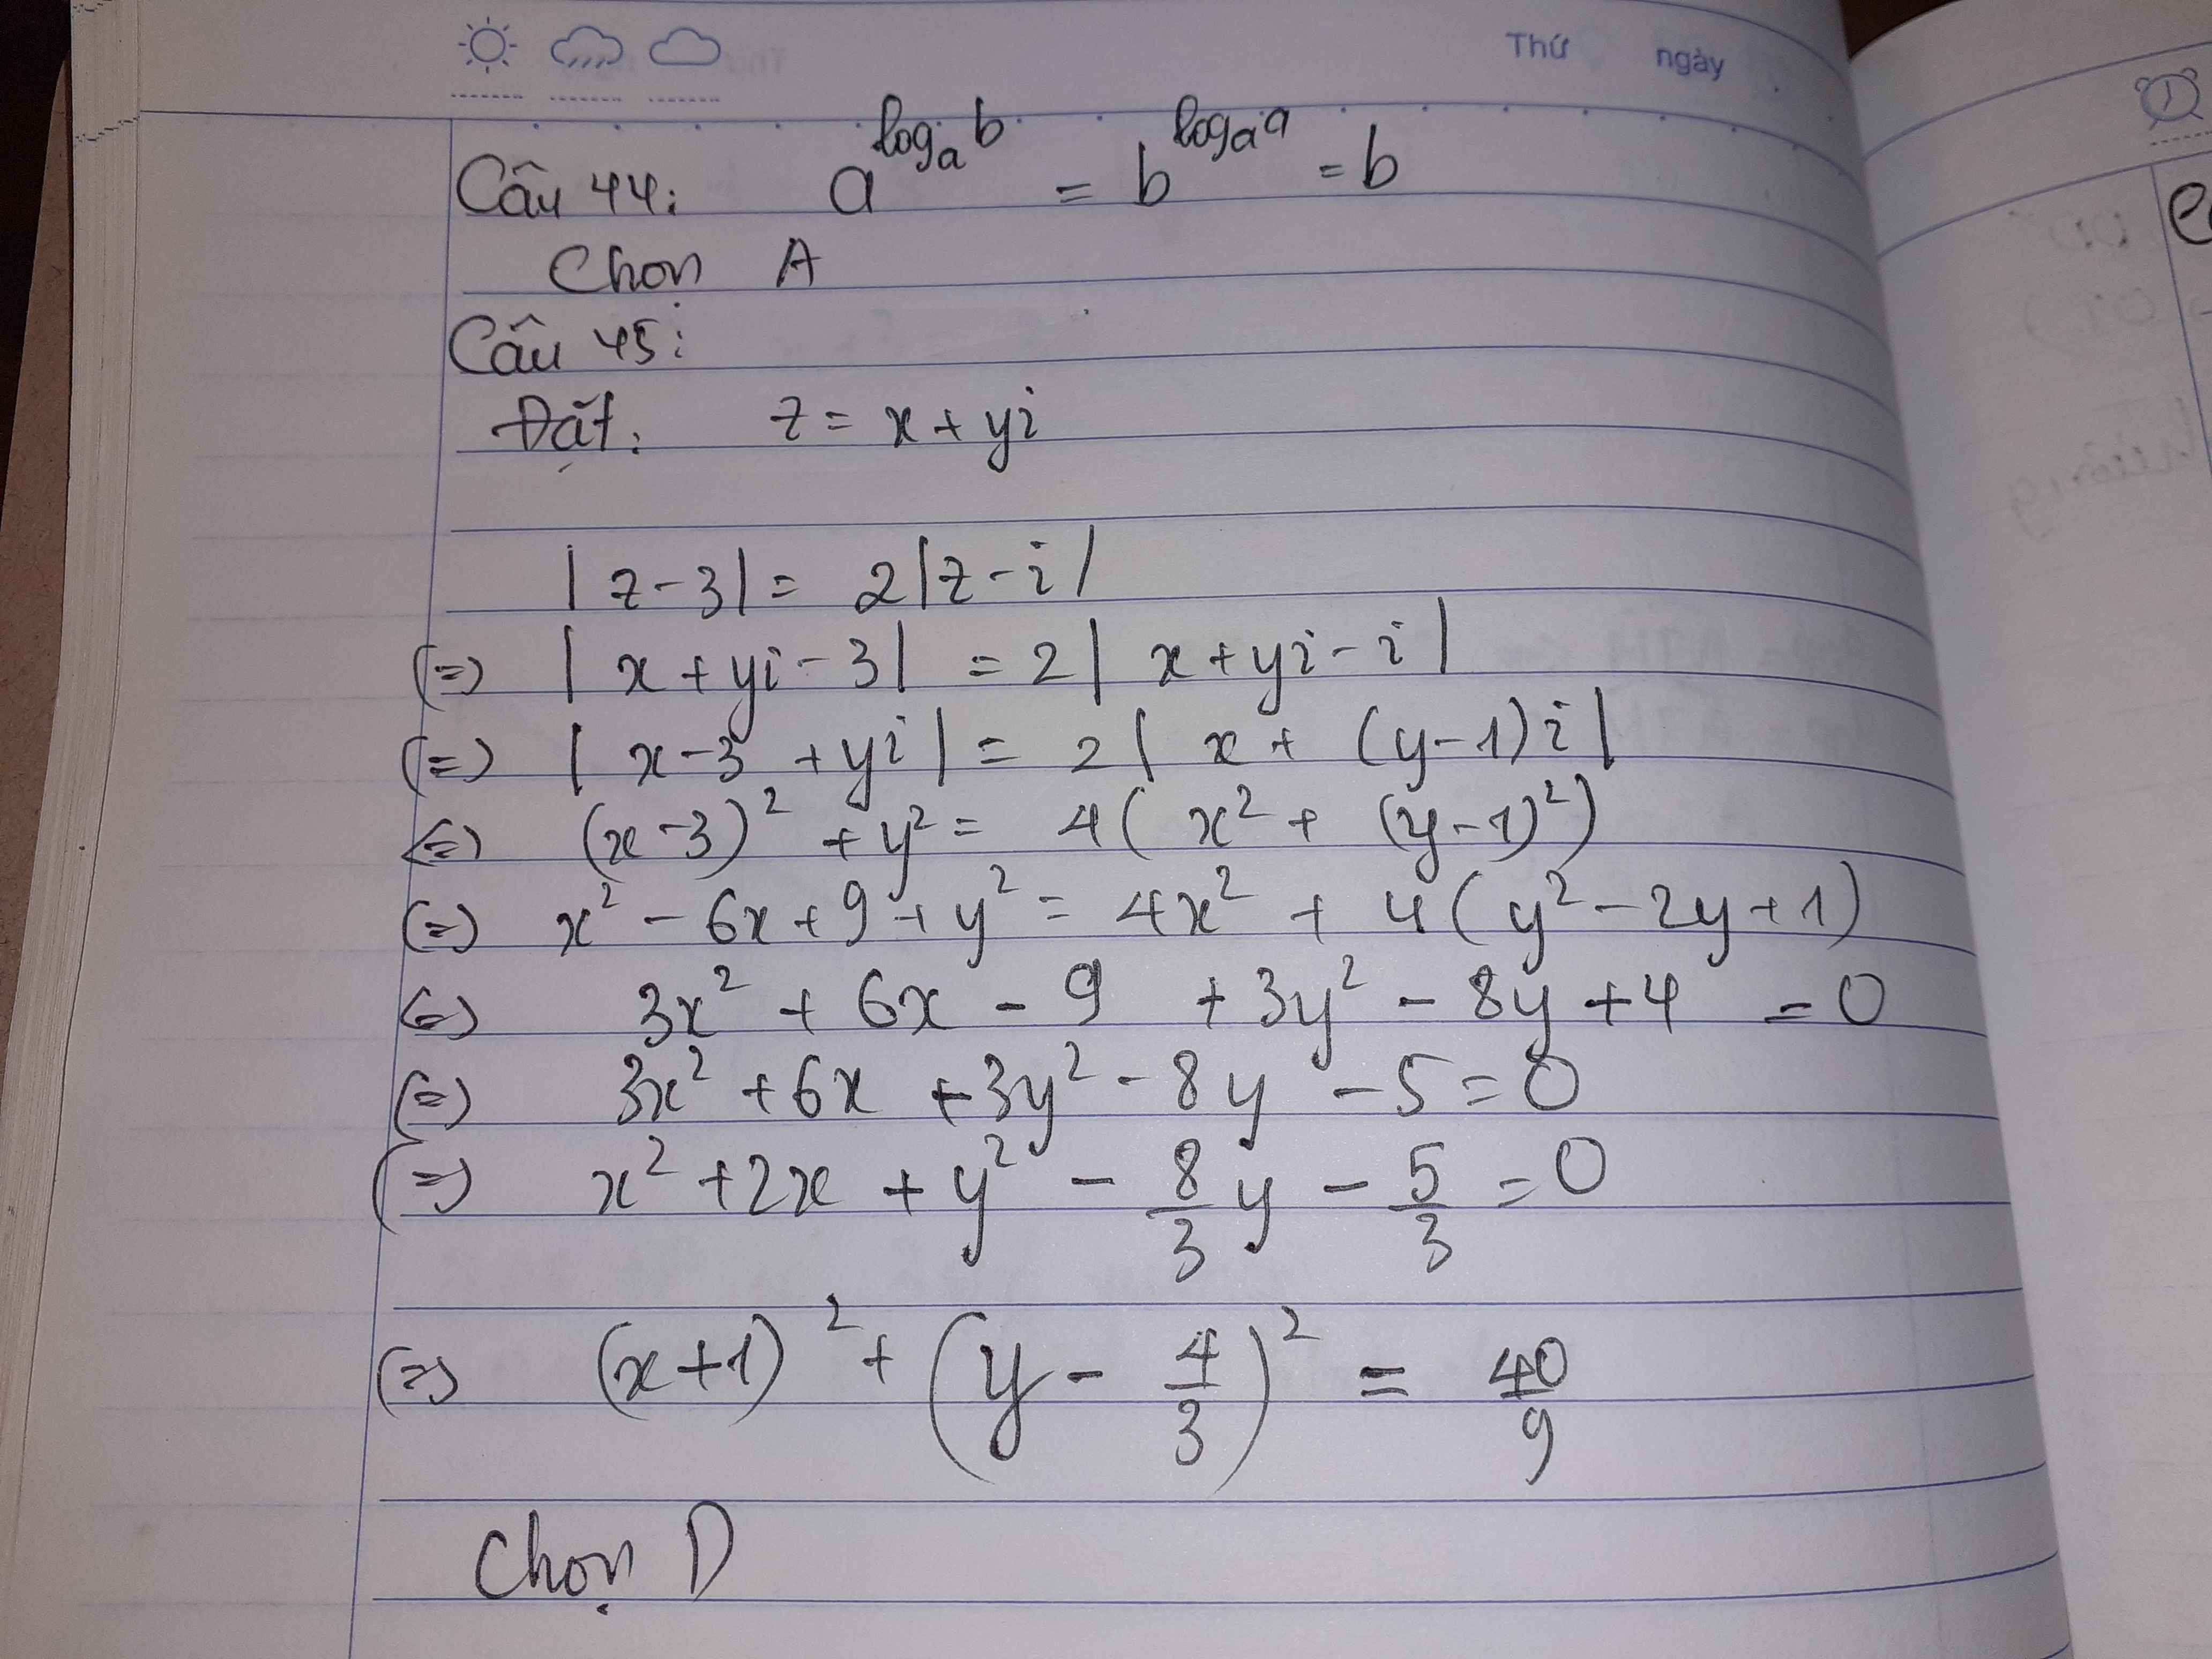 Thứ ngày
Câu 44: a^{log_a b} = b^{log_a a} = b
Chọn A
Câu 45:
Đặt: z = x + yi
|z - 3| = 2|z - i|
(=) |x + yi - 3| = 2|x + yi - i|
(=) |x - 3 + yi| = 2|x + (y - 1)i|
(=) (x - 3)² + y² = 4(x² + (y - 1)²)
(=) x² - 6x + 9 + y² = 4x² + 4(y² - 2y + 1)
(=) 3x² + 6x - 9 + 3y² - 8y + 4 = 0
(=) 3x² + 6x + 3y² - 8y - 5 = 0
(=) x² + 2x + y² - 8/3 y - 5/3 = 0
(=) (x + 1)² + (y - 4/3)² = 40/9
Chọn D